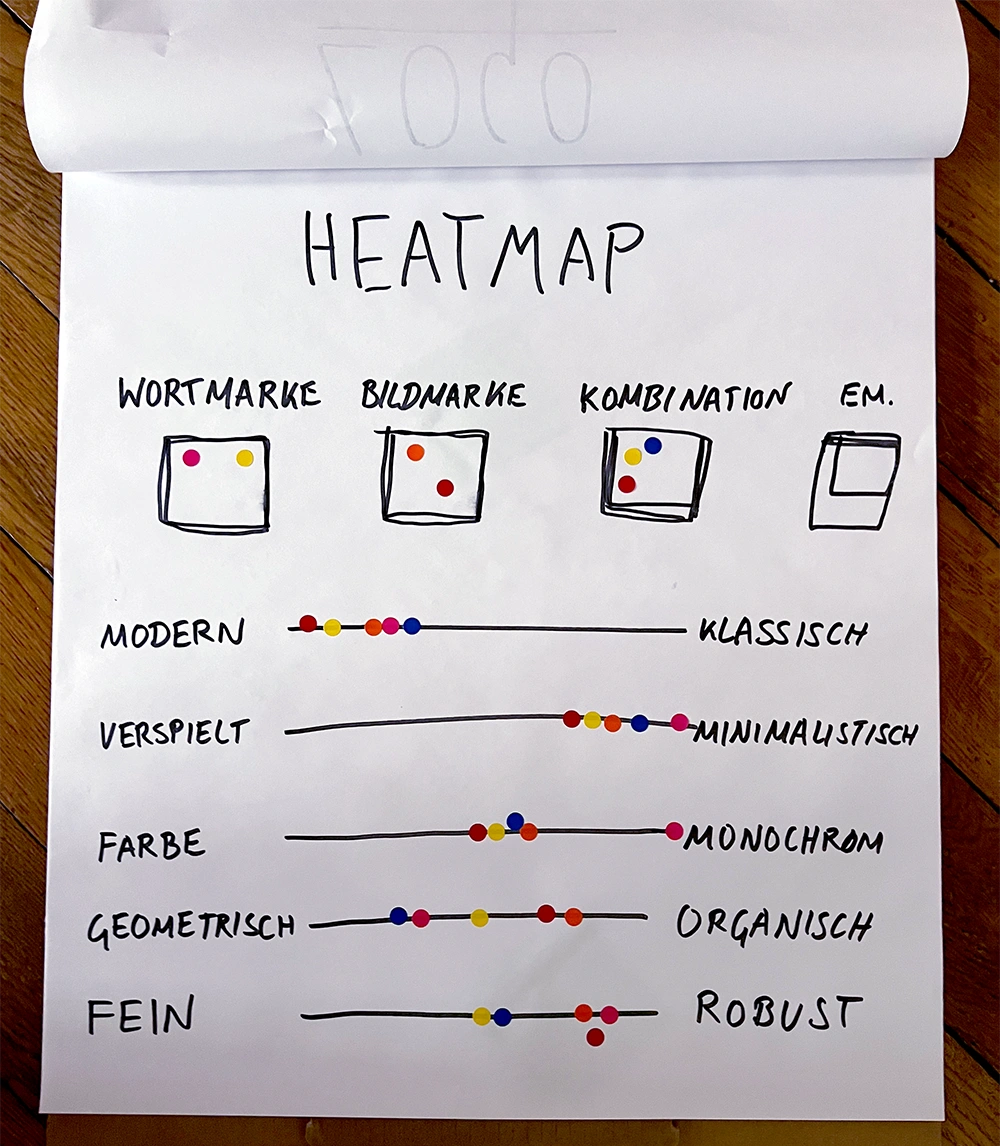 LOGO
HEATMAP
WORTMARKE BILDMARKE KOMBINATION EM.
MODERN KLASSISCH
VERSPIELT MINIMALISTISCH
FARBE MONOCHROM
GEOMETRISCH ORGANISCH
FEIN ROBUST